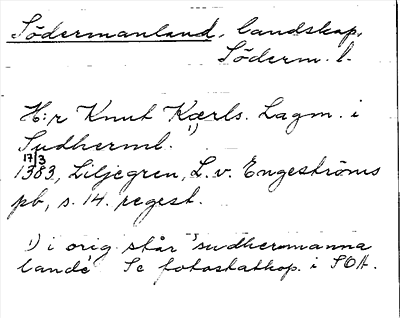 Södermanland, landskap,
Söderm. l.
H:r Knut Kærls. Lagm. i
Sudherml. 1)
17/3
1383, Liljegren, L. v. Engeströms
pb, s. 14. regest.
1) i orig står "sudhermanna
lande" Se fotostatkop. i SOA.